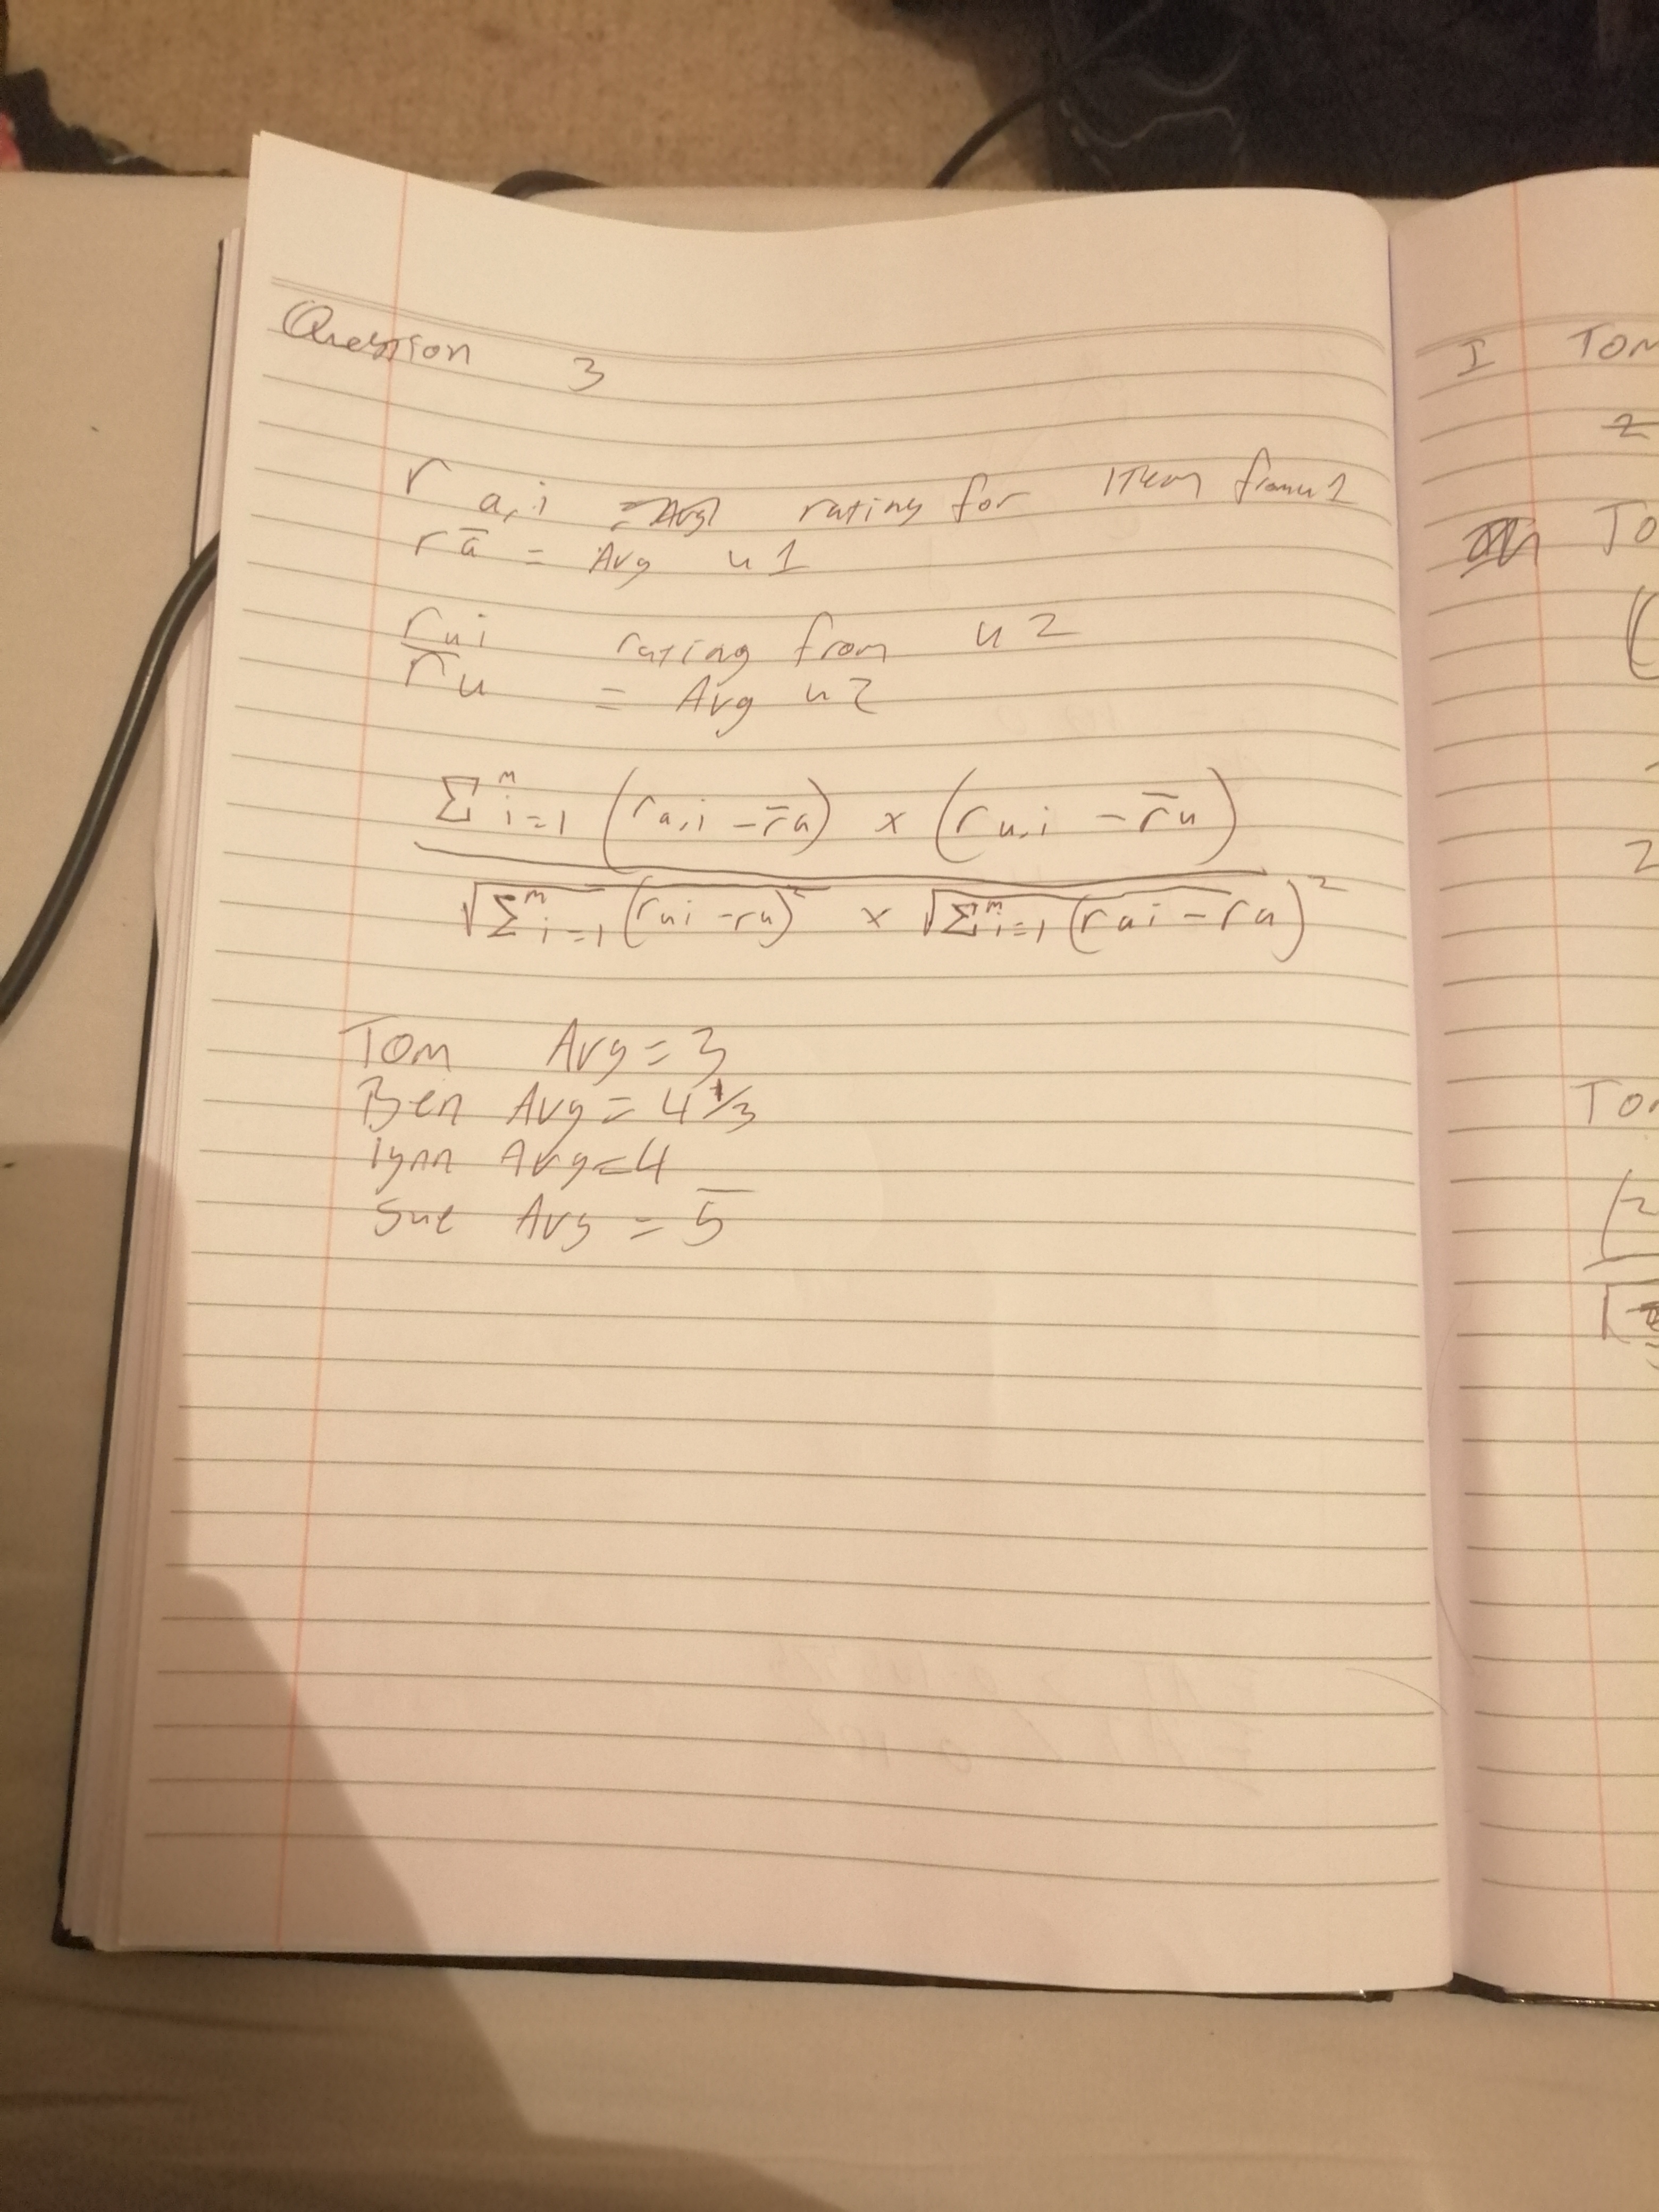 Question 3
r a,i = rating for item from u1
r ā = Avg u1
r u i rating from u2
r̄ u = Avg u2
Σ^m i=1 (r a,i − r̄ a) × (r u,i − r̄ u)
√Σ^m i=1 (r u i − r u)² × √Σ^m i=1 (r a i − r a)²
Tom Avg = 3
Ben Avg = 4 1/3
lynn Avg = 4
Sue Avg = 5
I Tom
2
To
2
To
(2